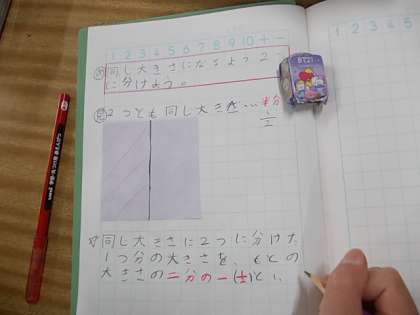 1 2 3 4 5 6 7 8 9 10 + -
1 2 3 4 5
め 同じ大きさになるよう 2つ
に分けよう。
見 2つとも同じ大きさ…半分
1/2
ま 同じ大きさに2つに分けた
1つ分の大きさを、もとの
大きさの二分の一(1/2)とい